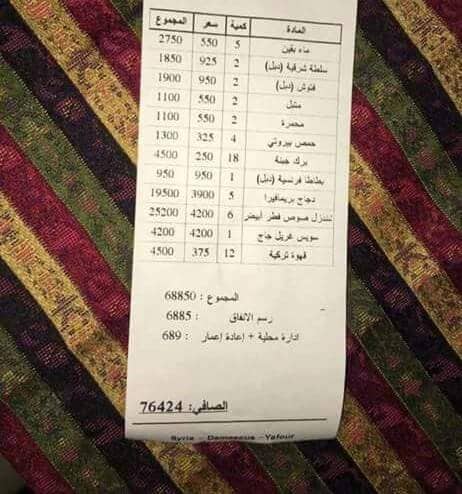 المادة كمية سعر المجموع
ماء بقين 5 550 2750
سلطة شرقية (دبل) 2 925 1850
فتوش (دبل) 2 950 1900
متبل 2 550 1100
محمرة 2 550 1100
حمص بيروتي 4 325 1300
برك جبنة 18 250 4500
بطاطا فرنسية (دبل) 1 950 950
دجاج بريمافيرا 5 3900 19500
صوص فطر أبيض 6 4200 25200
سويس غريل جاج 1 4200 4200
قهوة تركية 12 375 4500
المجموع : 68850
رسم الانفاق : 6885
ادارة محلية + إعادة إعمار : 689
الصافي: 76424
Syria - Damascus - Yafour